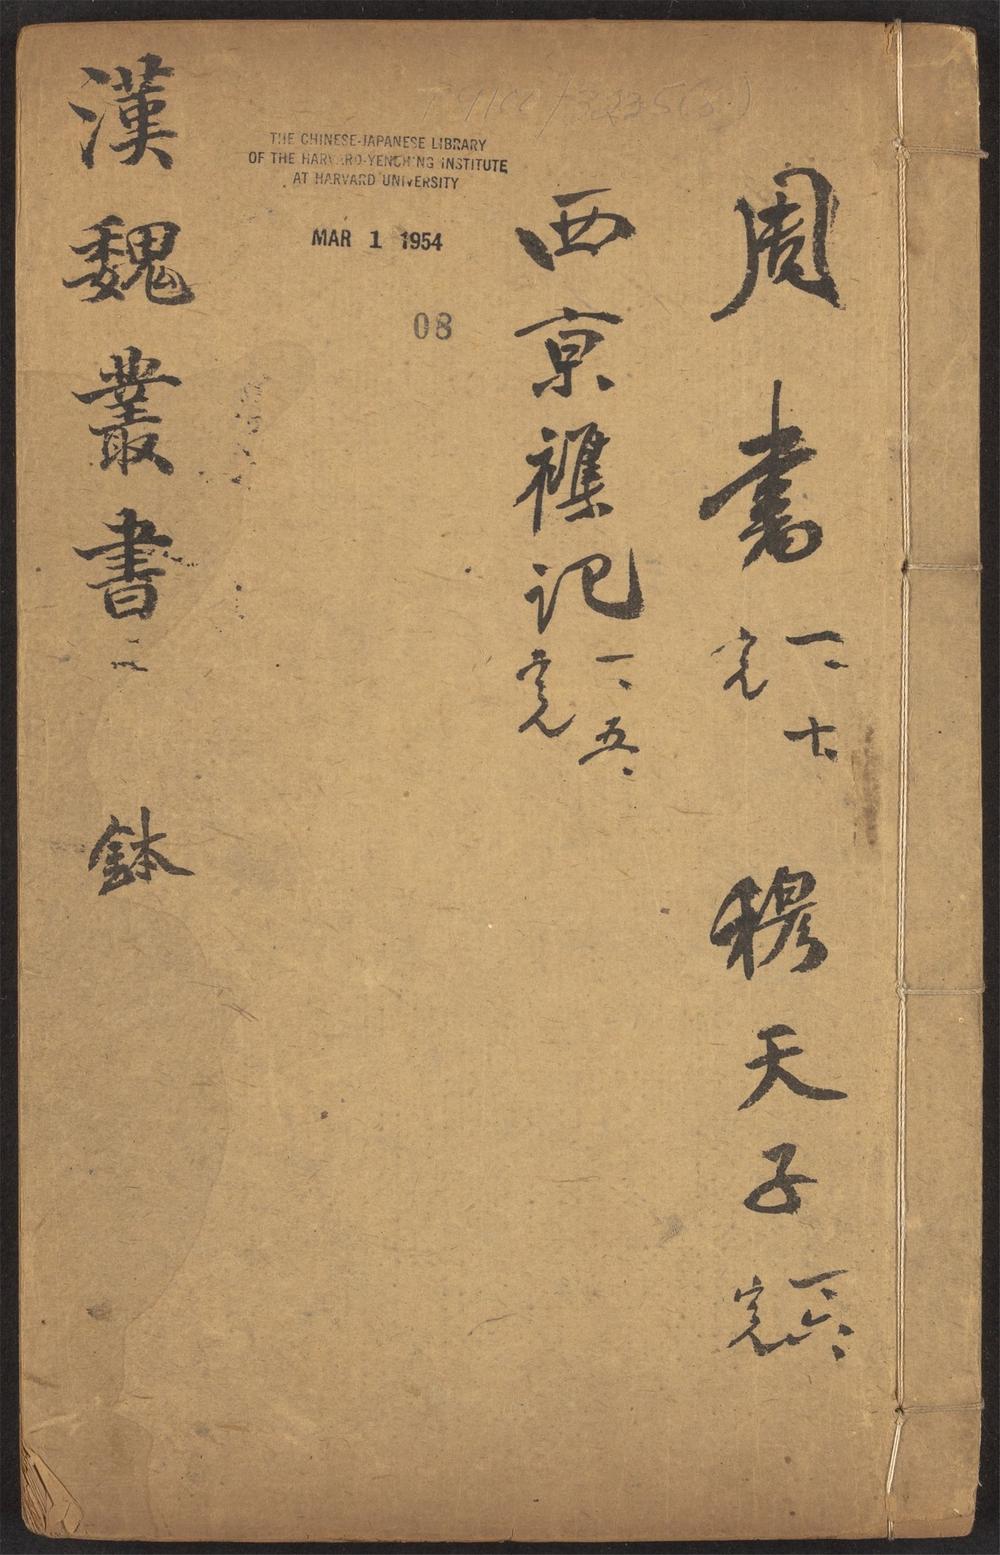 周書 一、十、完
穆天子 一、六、完
西京襍記 一、五、完
漢魏叢書
鉢
THE CHINESE-JAPANESE LIBRARY
OF THE HARVARD-YENCHING INSTITUTE
AT HARVARD UNIVERSITY
MAR 1 1954
08